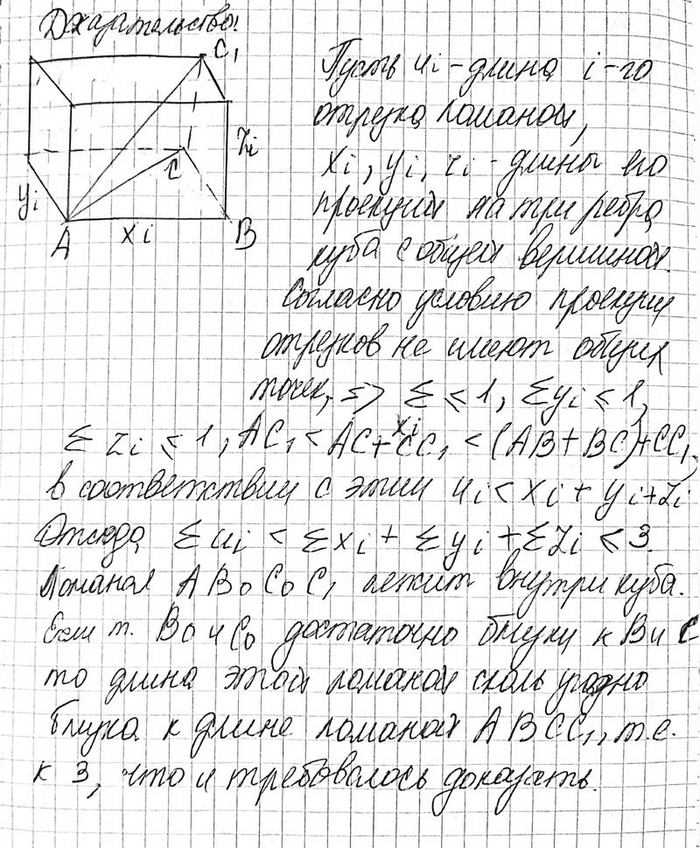 Доказательство!
C₁
Zi
C
yi
A xi B
Пусть ui - длина i-го
отрезка ломаной,
xi, yi, zi - длины его
проекций на три ребра
куба с общей вершиной.
Согласно условию проекции
отрезков не имеют общих
точек, => Σ xi ≤ 1, Σyi ≤ 1,
Σ zi ≤ 1, AC₁ < AC + CC₁ < (AB + BC) + CC₁,
в соответствии с этим ui < xi + yi + zi
Отсюда Σui < Σxi + Σyi + Σzi ≤ 3.
Ломаная AB₀C₀C₁ лежит внутри куба.
Если т. B₀ и C₀ достаточно близки к B и C
то длина этой ломаной сколь угодно
близка к длине ломаной ABCC₁, т.е.
к 3, что и требовалось доказать.